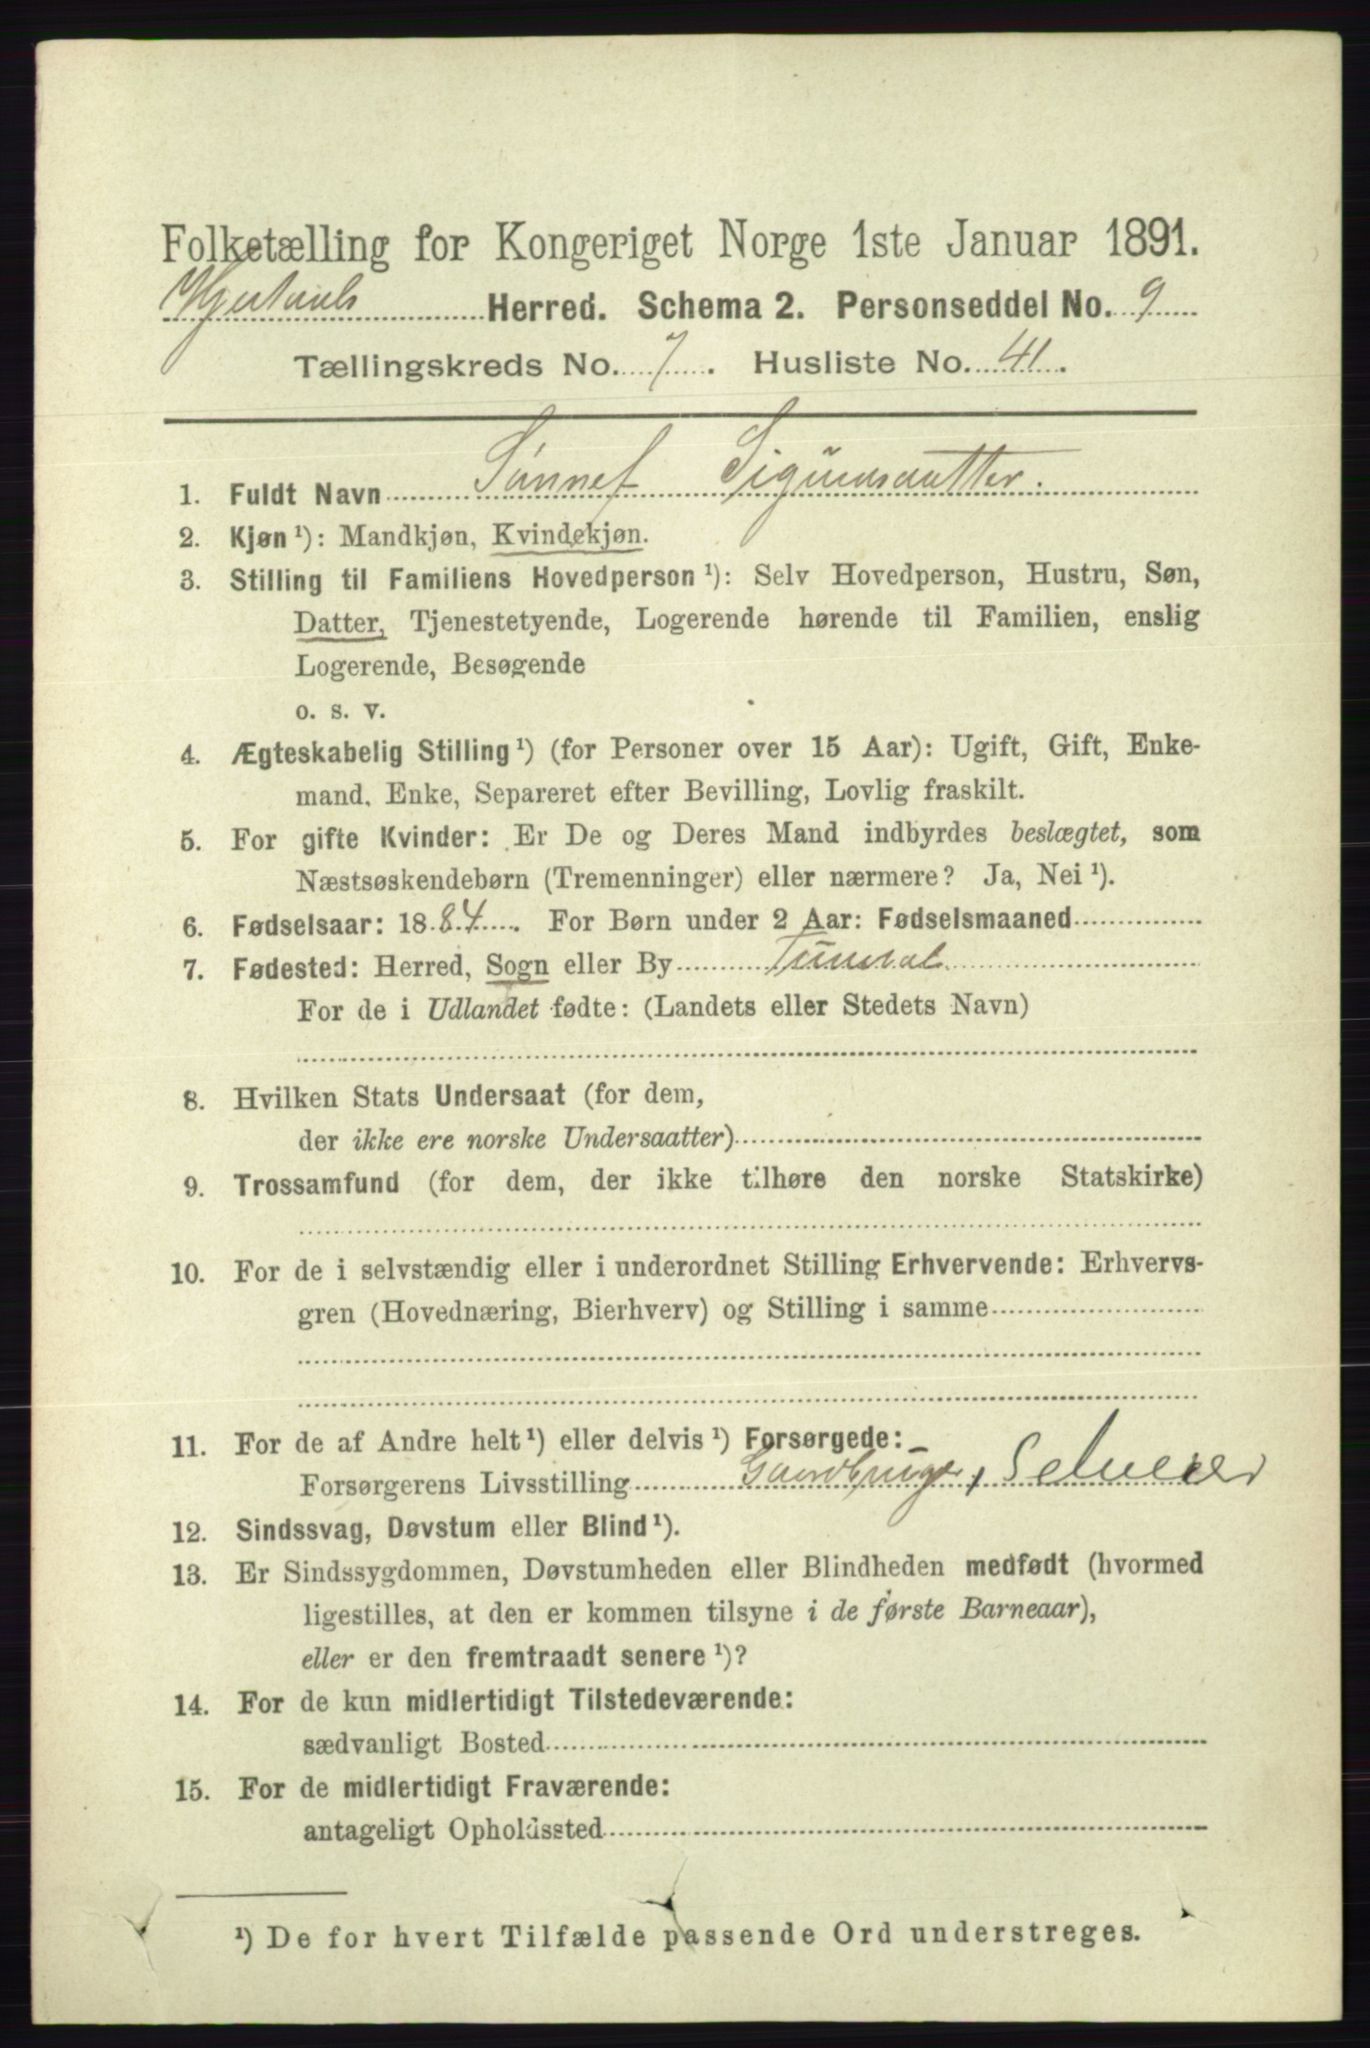 Folketælling for Kongeriget Norge 1ste Januar 1891.
Hjertdals Herred. Schema 2. Personseddel No. 9
Tællingskreds No. 7. Husliste No. 41.
1. Fuldt Navn Sønnef Sigurdsdatter.
2. Kjøn ¹): Mandkjøn, Kvindekjøn.
3. Stilling til Familiens Hovedperson ¹): Selv Hovedperson, Hustru, Søn,
Datter, Tjenestetyende, Logerende hørende til Familien, enslig
Logerende, Besøgende
o. s. v.
4. Ægteskabelig Stilling ¹) (for Personer over 15 Aar): Ugift, Gift, Enke-
mand, Enke, Separeret efter Bevilling, Lovlig fraskilt.
5. For gifte Kvinder: Er De og Deres Mand indbyrdes beslægtet, som
Næstsøskendebørn (Tremenninger) eller nærmere? Ja, Nei ¹).
6. Fødselsaar: 1884. For Børn under 2 Aar: Fødselsmaaned
7. Fødested: Herred, Sogn eller By Tuddal
For de i Udlandet fødte: (Landets eller Stedets Navn)
8. Hvilken Stats Undersaat (for dem,
der ikke ere norske Undersaatter)
9. Trossamfund (for dem, der ikke tilhøre den norske Statskirke)
10. For de i selvstændig eller i underordnet Stilling Erhvervende: Erhvervs-
gren (Hovednæring, Bierhverv) og Stilling i samme
11. For de af Andre helt ¹) eller delvis ¹) Forsørgede:
Forsørgerens Livsstilling Gaardbruger, Selveier
12. Sindssvag, Døvstum eller Blind ¹).
13. Er Sindssygdommen, Døvstumheden eller Blindheden medfødt (hvormed
ligestilles, at den er kommen tilsyne i de første Barneaar),
eller er den fremtraadt senere ¹)?
14. For de kun midlertidigt Tilstedeværende:
sædvanligt Bosted
15. For de midlertidigt Fraværende:
antageligt Opholdssted
¹) De for hvert Tilfælde passende Ord understreges.